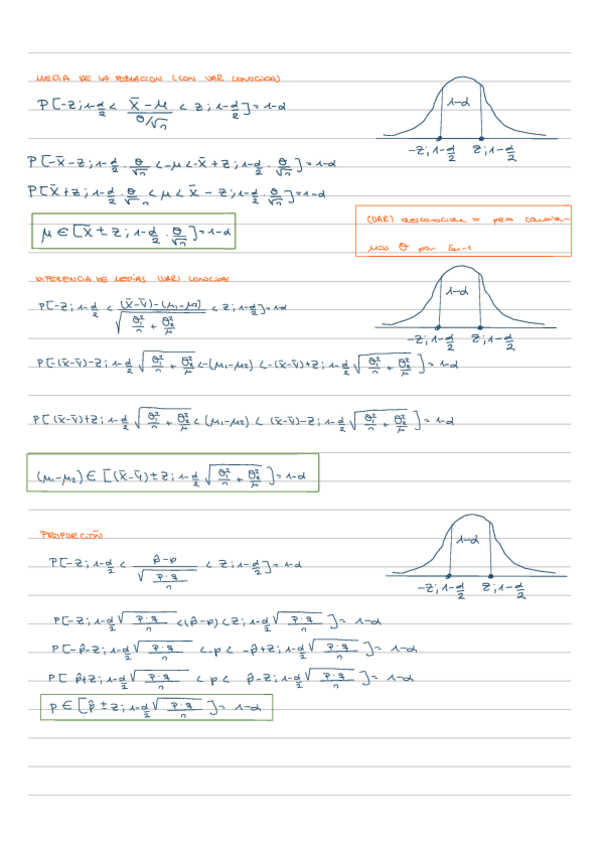 MEDIA DE LA POBLACION (CON VAR CONOCIDA)
P[-z; 1-α/2 < (x̄ - μ)/(θ/√n) < z; 1-α/2] = 1-α
1-α
-z; 1-α/2 z; 1-α/2
P[-x̄ - z; 1-α/2 · θ/√n < -μ < -x̄ + z; 1-α/2 · θ/√n] = 1-α
P[x̄ + z; 1-α/2 · θ/√n < μ < x̄ - z; 1-α/2 · θ/√n] = 1-α
μ ∈ [x̄ ± z; 1-α/2 · θ/√n] = 1-α
(VAR) desconocida = pero
θ por Sn-1
DIFERENCIA DE MEDIAS (VAR) CONOCIDA
P[-z; 1-α/2 < ((x̄-ȳ)-(μ1-μ2))/√(θ1²/n + θ2²/μ) < z; 1-α/2] = 1-α
1-α
-z; 1-α/2 z; 1-α/2
P[-(x̄-ȳ) - z; 1-α/2 √(θ1²/n + θ2²/μ) < -(μ1-μ2) < -(x̄-ȳ) + z; 1-α/2 √(θ1²/n + θ2²/μ)] = 1-α
P[(x̄-ȳ) + z; 1-α/2 √(θ1²/n + θ2²/μ) < (μ1-μ2) < (x̄-ȳ) - z; 1-α/2 √(θ1²/n + θ2²/μ)] = 1-α
(μ1-μ2) ∈ [(x̄-ȳ) ± z; 1-α/2 √(θ1²/n + θ2²/μ)] = 1-α
PROPORCIÓN
P[-z; 1-α/2 < (p̂-p)/√(p·q/n) < z; 1-α/2] = 1-α
1-α
-z; 1-α/2 z; 1-α/2
P[-z; 1-α/2 √(p·q/n) < (p̂-p) < z; 1-α/2 √(p·q/n)] = 1-α
P[-p̂ - z; 1-α/2 √(p·q/n) < -p < -p̂ + z; 1-α/2 √(p·q/n)] = 1-α
P[p̂ + z; 1-α/2 √(p·q/n) < p < p̂ - z; 1-α/2 √(p·q/n)] = 1-α
p ∈ [p̂ ± z; 1-α/2 √(p·q/n)] = 1-α